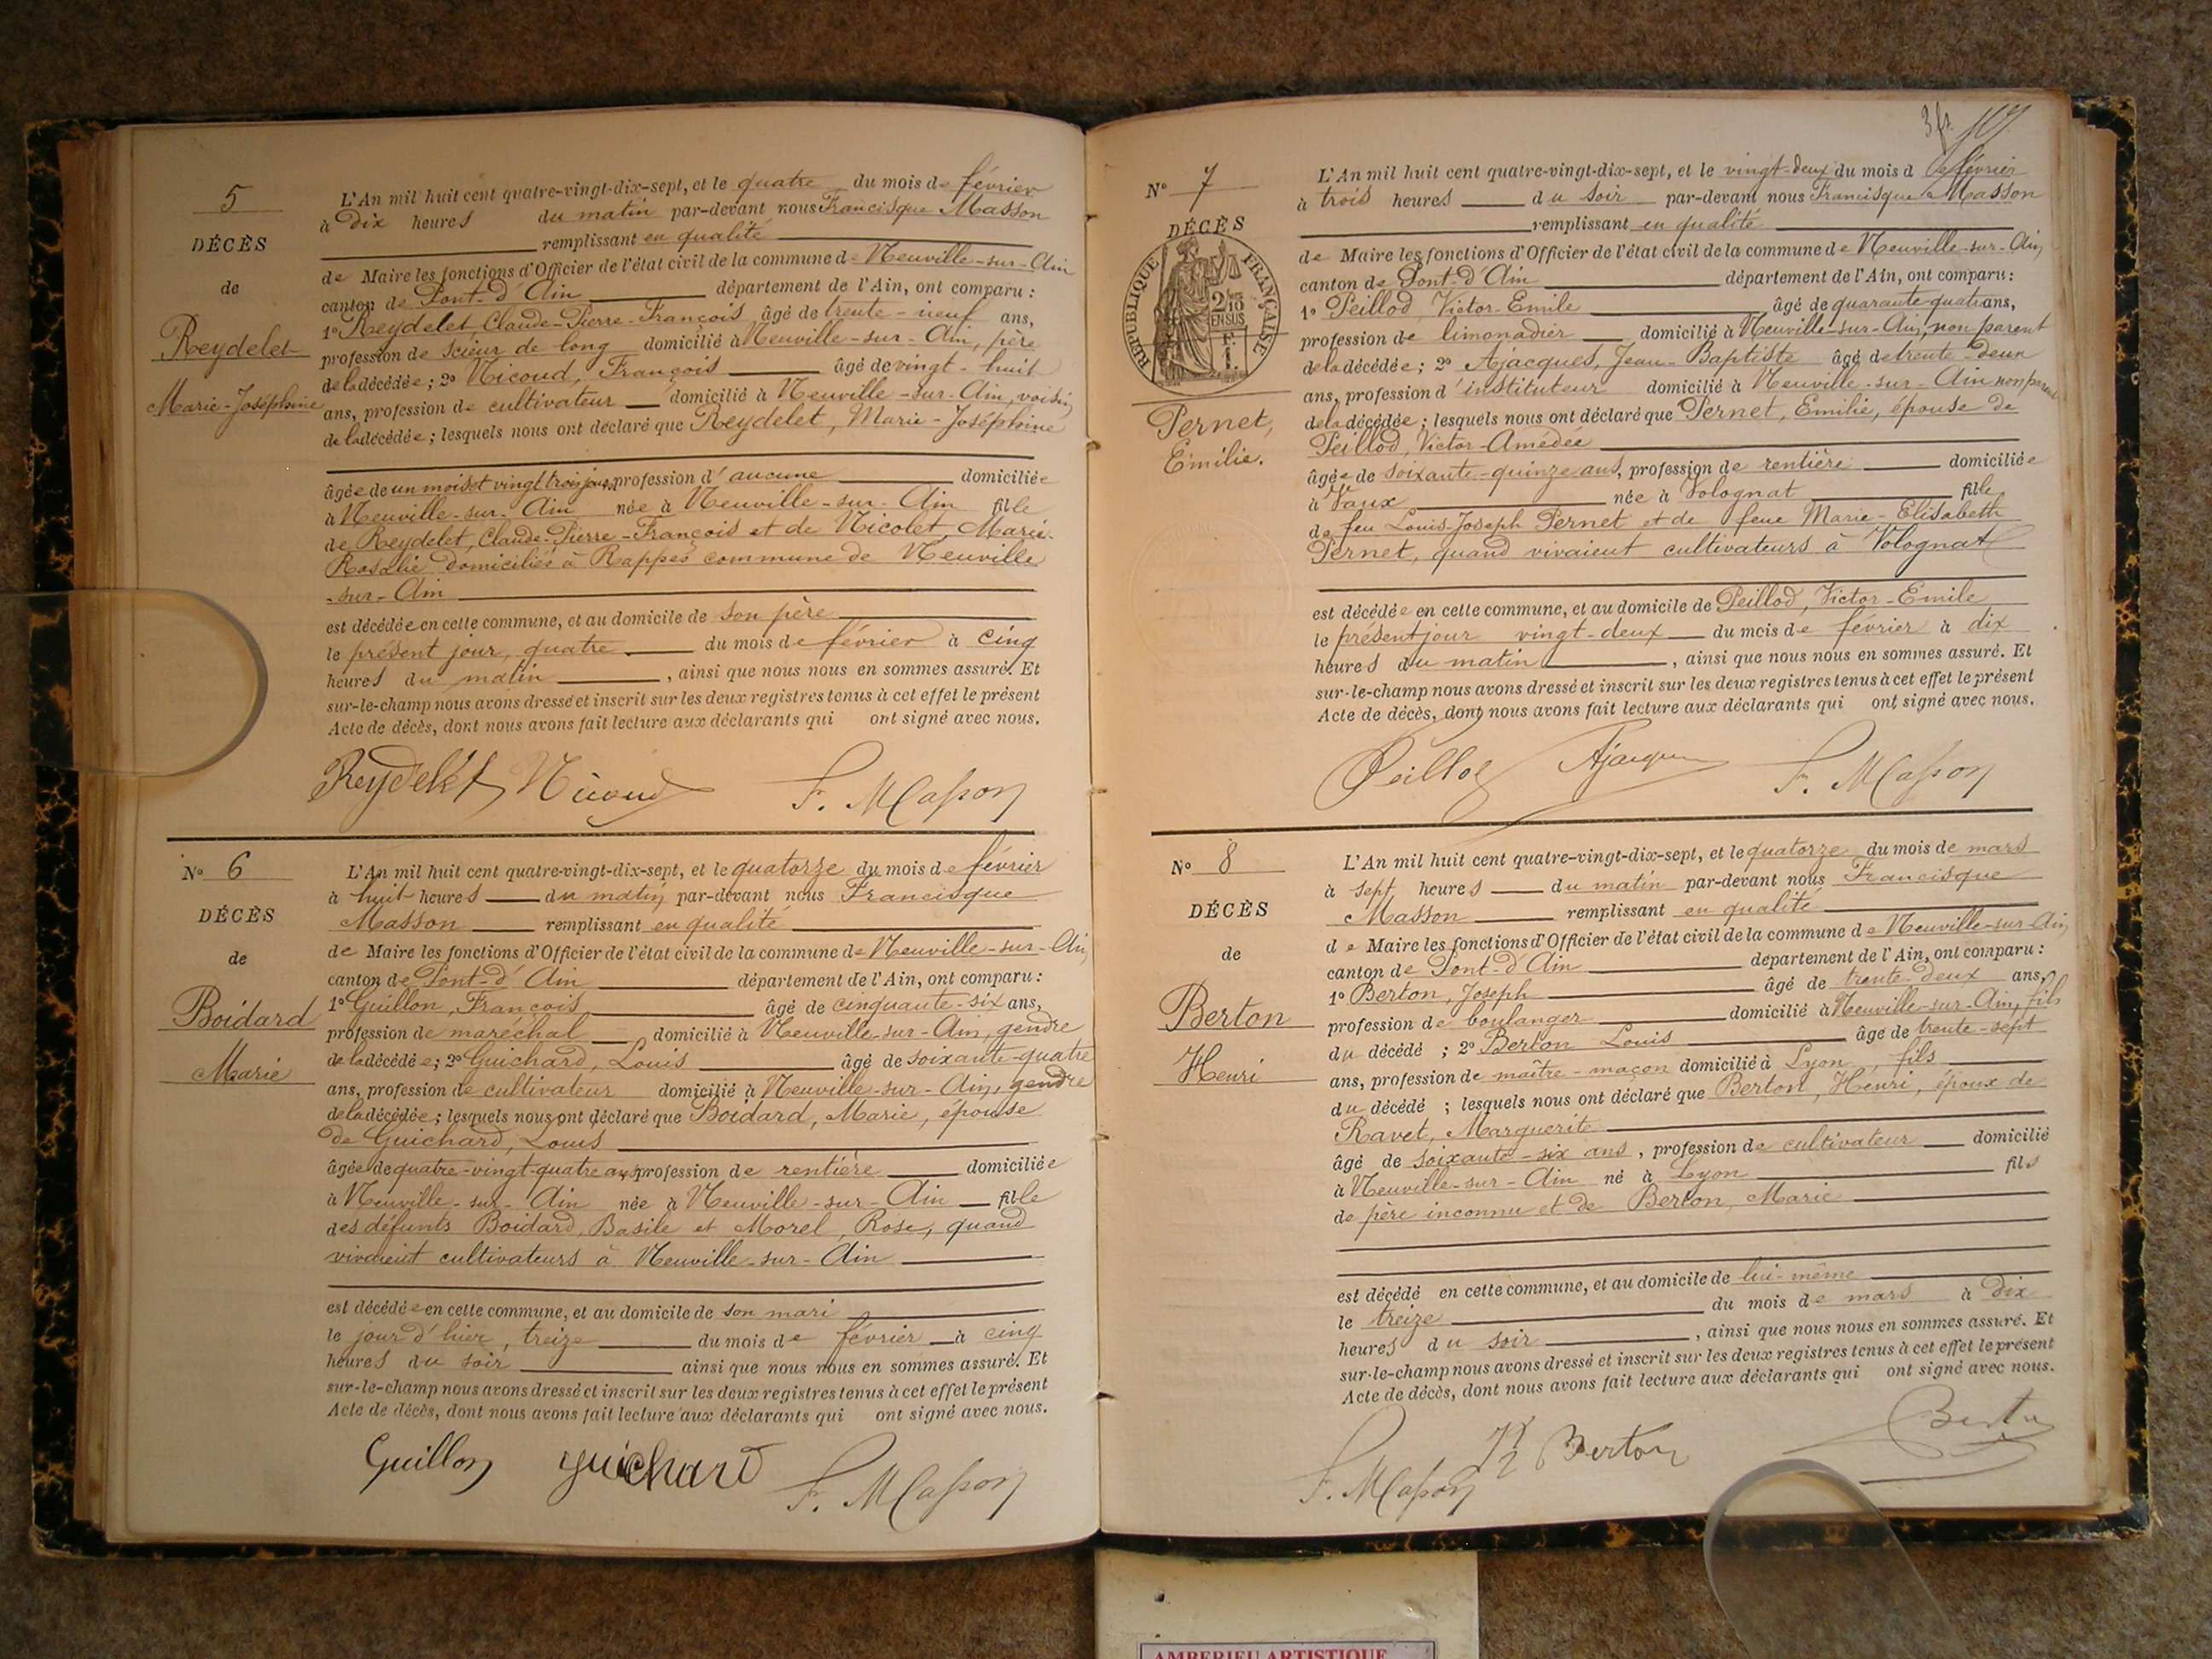 5
DÉCÈS
de
Reydelet
Marie-Joséphine
L'An mil huit cent quatre-vingt-dix-sept, et le quatre du mois de février
à Dix heures du matin par-devant nous Francisque Masson
remplissant en qualité
de Maire les fonctions d'Officier de l'état civil de la commune de Neuville-sur-Ain
canton de Pont-d'Ain département de l'Ain, ont comparu :
1º Reydelet, Claude-Pierre-François âgé de trente-neuf ans,
profession de scieur de long domicilié à Neuville-sur-Ain, père
de la décédée ; 2º Nicoud, François âgé de vingt-huit
ans, profession de cultivateur domicilié à Neuville-sur-Ain, voisin
de la décédée ; lesquels nous ont déclaré que Reydelet, Marie-Joséphine
âgée de un mois et vingt trois jours, profession d'aucune domiciliée
à Neuville-sur-Ain née à Neuville-sur-Ain fille
de Reydelet, Claude-Pierre-François et de Nicolet, Marie-
Rosalie domiciliés à Rappes commune de Neuville
-sur-Ain
est décédée en cette commune, et au domicile de son père
le présent jour, quatre du mois de février à cinq
heures du matin, ainsi que nous nous en sommes assuré. Et
sur-le-champ nous avons dressé et inscrit sur les deux registres tenus à cet effet le présent
Acte de décès, dont nous avons fait lecture aux déclarants qui ont signé avec nous.
Reydelet Nicoud F. Masson
Nº 6
DÉCÈS
de
Boidard
Marie
L'An mil huit cent quatre-vingt-dix-sept, et le quatorze du mois de février
à huit heures du matin par-devant nous Francisque
Masson remplissant en qualité
de Maire les fonctions d'Officier de l'état civil de la commune de Neuville-sur-Ain,
canton de Pont-d'Ain département de l'Ain, ont comparu :
1º Guillon, François âgé de cinquante-six ans,
profession de maréchal domicilié à Neuville-sur-Ain, gendre
de la décédée ; 2º Guichard, Louis âgé de soixante-quatre
ans, profession de cultivateur domicilié à Neuville-sur-Ain, gendre
de la décédée ; lesquels nous ont déclaré que Boidard, Marie, épouse
de Guichard, Louis
âgée de quatre-vingt-quatre ans, profession de rentière domiciliée
à Neuville-sur-Ain née à Neuville-sur-Ain fille
des défunts Boidard, Basile et Morel, Rose, quand
vivaient cultivateurs à Neuville-sur-Ain
est décédée en cette commune, et au domicile de son mari
le jour d'hier, treize du mois de février à cinq
heures du soir ainsi que nous nous en sommes assuré. Et
sur-le-champ nous avons dressé et inscrit sur les deux registres tenus à cet effet le présent
Acte de décès, dont nous avons fait lecture aux déclarants qui ont signé avec nous.
Guillon Guichard F. Masson
3 fr.
Nº 7
DÉCÈS
RÉPUBLIQUE FRANÇAISE
2/10 EN SUS
Pernet,
Emilie.
L'An mil huit cent quatre-vingt-dix-sept, et le vingt-deux du mois de février
à trois heures du soir par-devant nous Francisque Masson
remplissant en qualité
de Maire les fonctions d'Officier de l'état civil de la commune de Neuville-sur-Ain,
canton de Pont-d'Ain département de l'Ain, ont comparu :
1º Peillod, Victor-Emile âgé de quarante-quatre ans,
profession de limonadier domicilié à Neuville-sur-Ain, non parent
de la décédée ; 2º Ajacques, Jean-Baptiste âgé de trente-deux
ans, profession d'instituteur domicilié à Neuville-sur-Ain non parent
de la décédée ; lesquels nous ont déclaré que Pernet, Emilie, épouse de
Peillod, Victor-Amédée
âgée de soixante-quinze ans, profession de rentière domiciliée
à Vaux née à Volognat fille
de feu Louis-Joseph Pernet et de feue Marie-Elisabeth
Pernet, quand vivaient cultivateurs à Volognat
est décédée en cette commune, et au domicile de Peillod, Victor-Emile
le présent jour vingt-deux du mois de février à dix
heures du matin, ainsi que nous nous en sommes assuré. Et
sur-le-champ nous avons dressé et inscrit sur les deux registres tenus à cet effet le présent
Acte de décès, dont nous avons fait lecture aux déclarants qui ont signé avec nous.
Peillod Ajacques F. Masson
Nº 8
DÉCÈS
de
Berton
Henri
L'An mil huit cent quatre-vingt-dix-sept, et le quatorze du mois de mars
à sept heures du matin par-devant nous Francisque
Masson remplissant en qualité
de Maire les fonctions d'Officier de l'état civil de la commune de Neuville-sur-Ain,
canton de Pont-d'Ain département de l'Ain, ont comparu :
1º Berton, Joseph âgé de trente-deux ans,
profession de boulanger domicilié à Neuville-sur-Ain, fils
du décédé ; 2º Berton Louis âgé de trente-sept
ans, profession de maître-maçon domicilié à Lyon, fils
du décédé ; lesquels nous ont déclaré que Berton, Henri, époux de
Ravet, Marguerite
âgé de soixante-six ans, profession de cultivateur domicilié
à Neuville-sur-Ain né à Lyon fils
de père inconnu et de Berton, Marie
est décédé en cette commune, et au domicile de lui-même
le treize du mois de mars à dix
heures du soir, ainsi que nous nous en sommes assuré. Et
sur-le-champ nous avons dressé et inscrit sur les deux registres tenus à cet effet le présent
Acte de décès, dont nous avons fait lecture aux déclarants qui ont signé avec nous.
F. Masson Berton Berton
AMBERIEU ARTISTIQUE